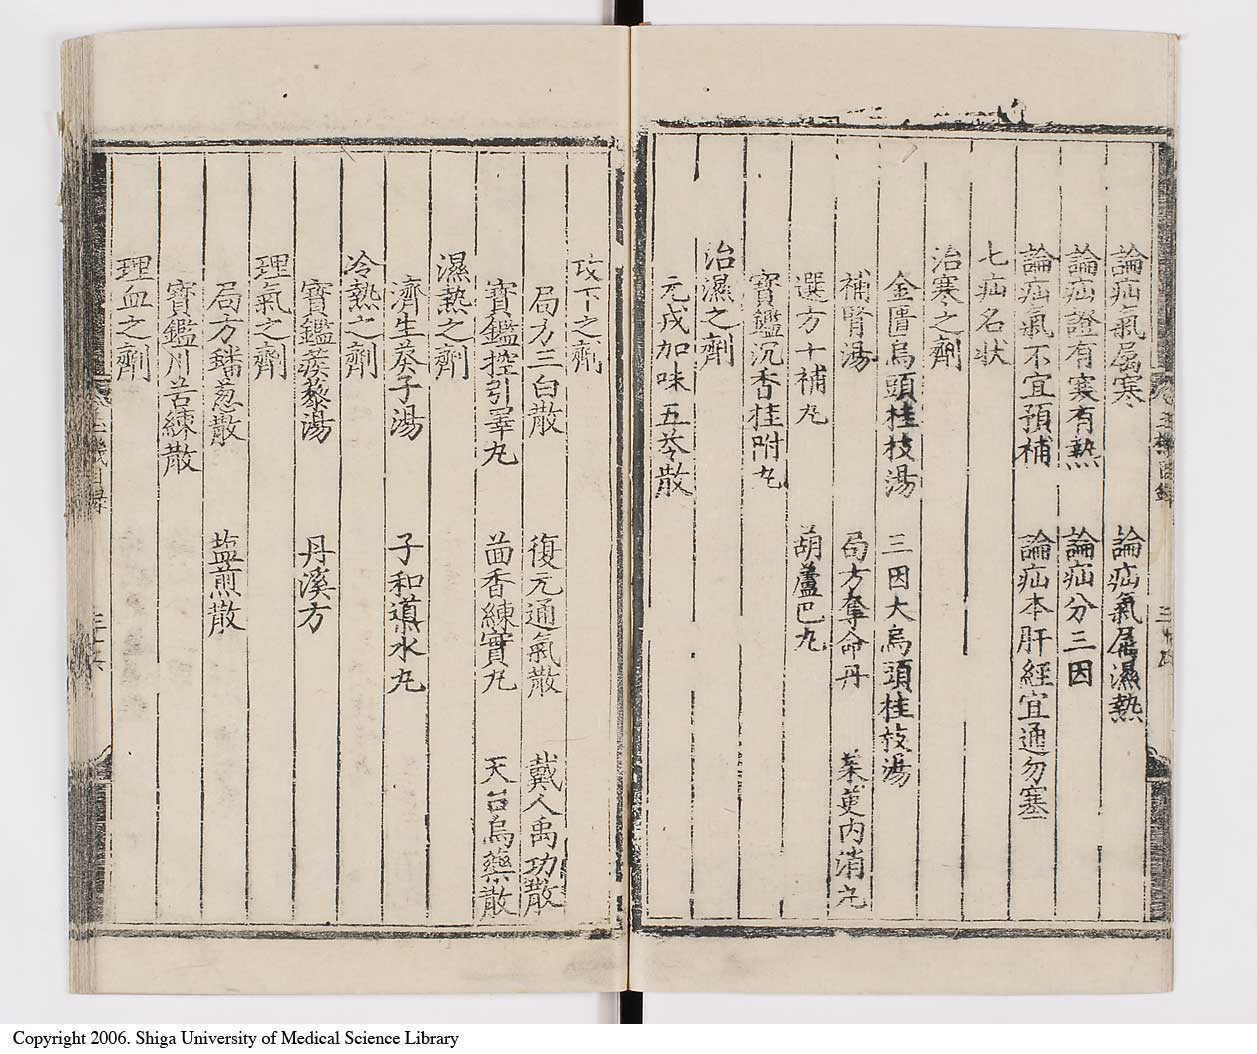 論疝氣屬寒 論疝氣屬濕熱
論疝證有寒有熱 論疝分三因
論疝氣不宜預補 論疝本肝經宜通勿塞
七疝名狀
治寒之劑
金匱烏頭桂枝湯 三因大烏頭桂枝湯
補腎湯 局方奪命丹 茱萸內消丸
選方十補丸 葫蘆巴丸
寶鑑沉香桂附丸
治濕之劑
元戎加味五苓散
攻下之劑
局方三白散 復元通氣散 戴人禹功散
寶鑑控引睪丸 茴香練實丸 天台烏藥散
濕熱之劑
濟生葵子湯 子和導水丸
冷熱之劑
寶鑑蒺藜湯 丹溪方
理氣之劑
局方蟠葱散 盐煎散
寶鑑川苦練散
理血之劑
Copyright 2006. Shiga University of Medical Science Library